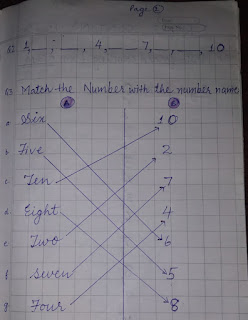 Page 6
Q2. 1, __, __, 4, __, __ 7, __, __, 10
Q3 Match the Number with the number name
A B
a Six 10
b Five 2
c Ten 7
d Eight 4
e Two 6
f Seven 5
g Four 8